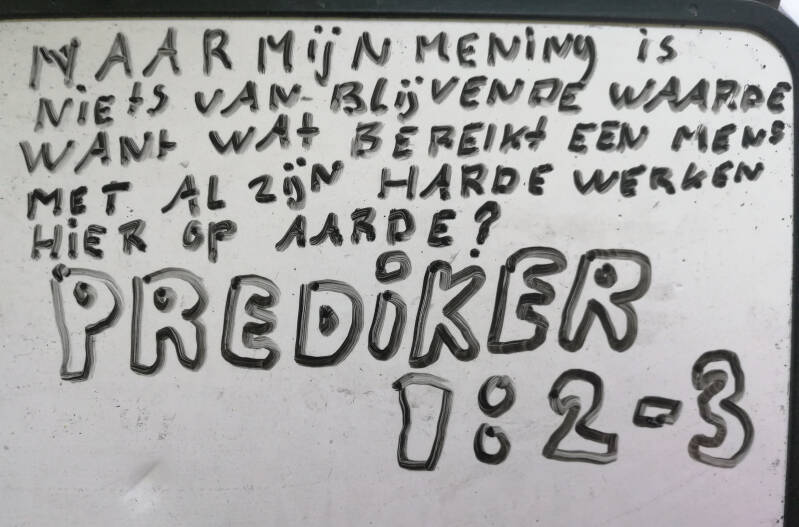 NAAR MijN MENiNg is
NiEtS VAN BLijVENDE WAARDE
WANt WAt BEREIKt EEN MENS
MET AL ZijN HARDE WERKEN
HiER OP AARDE?
PREDiKER
1:2-3